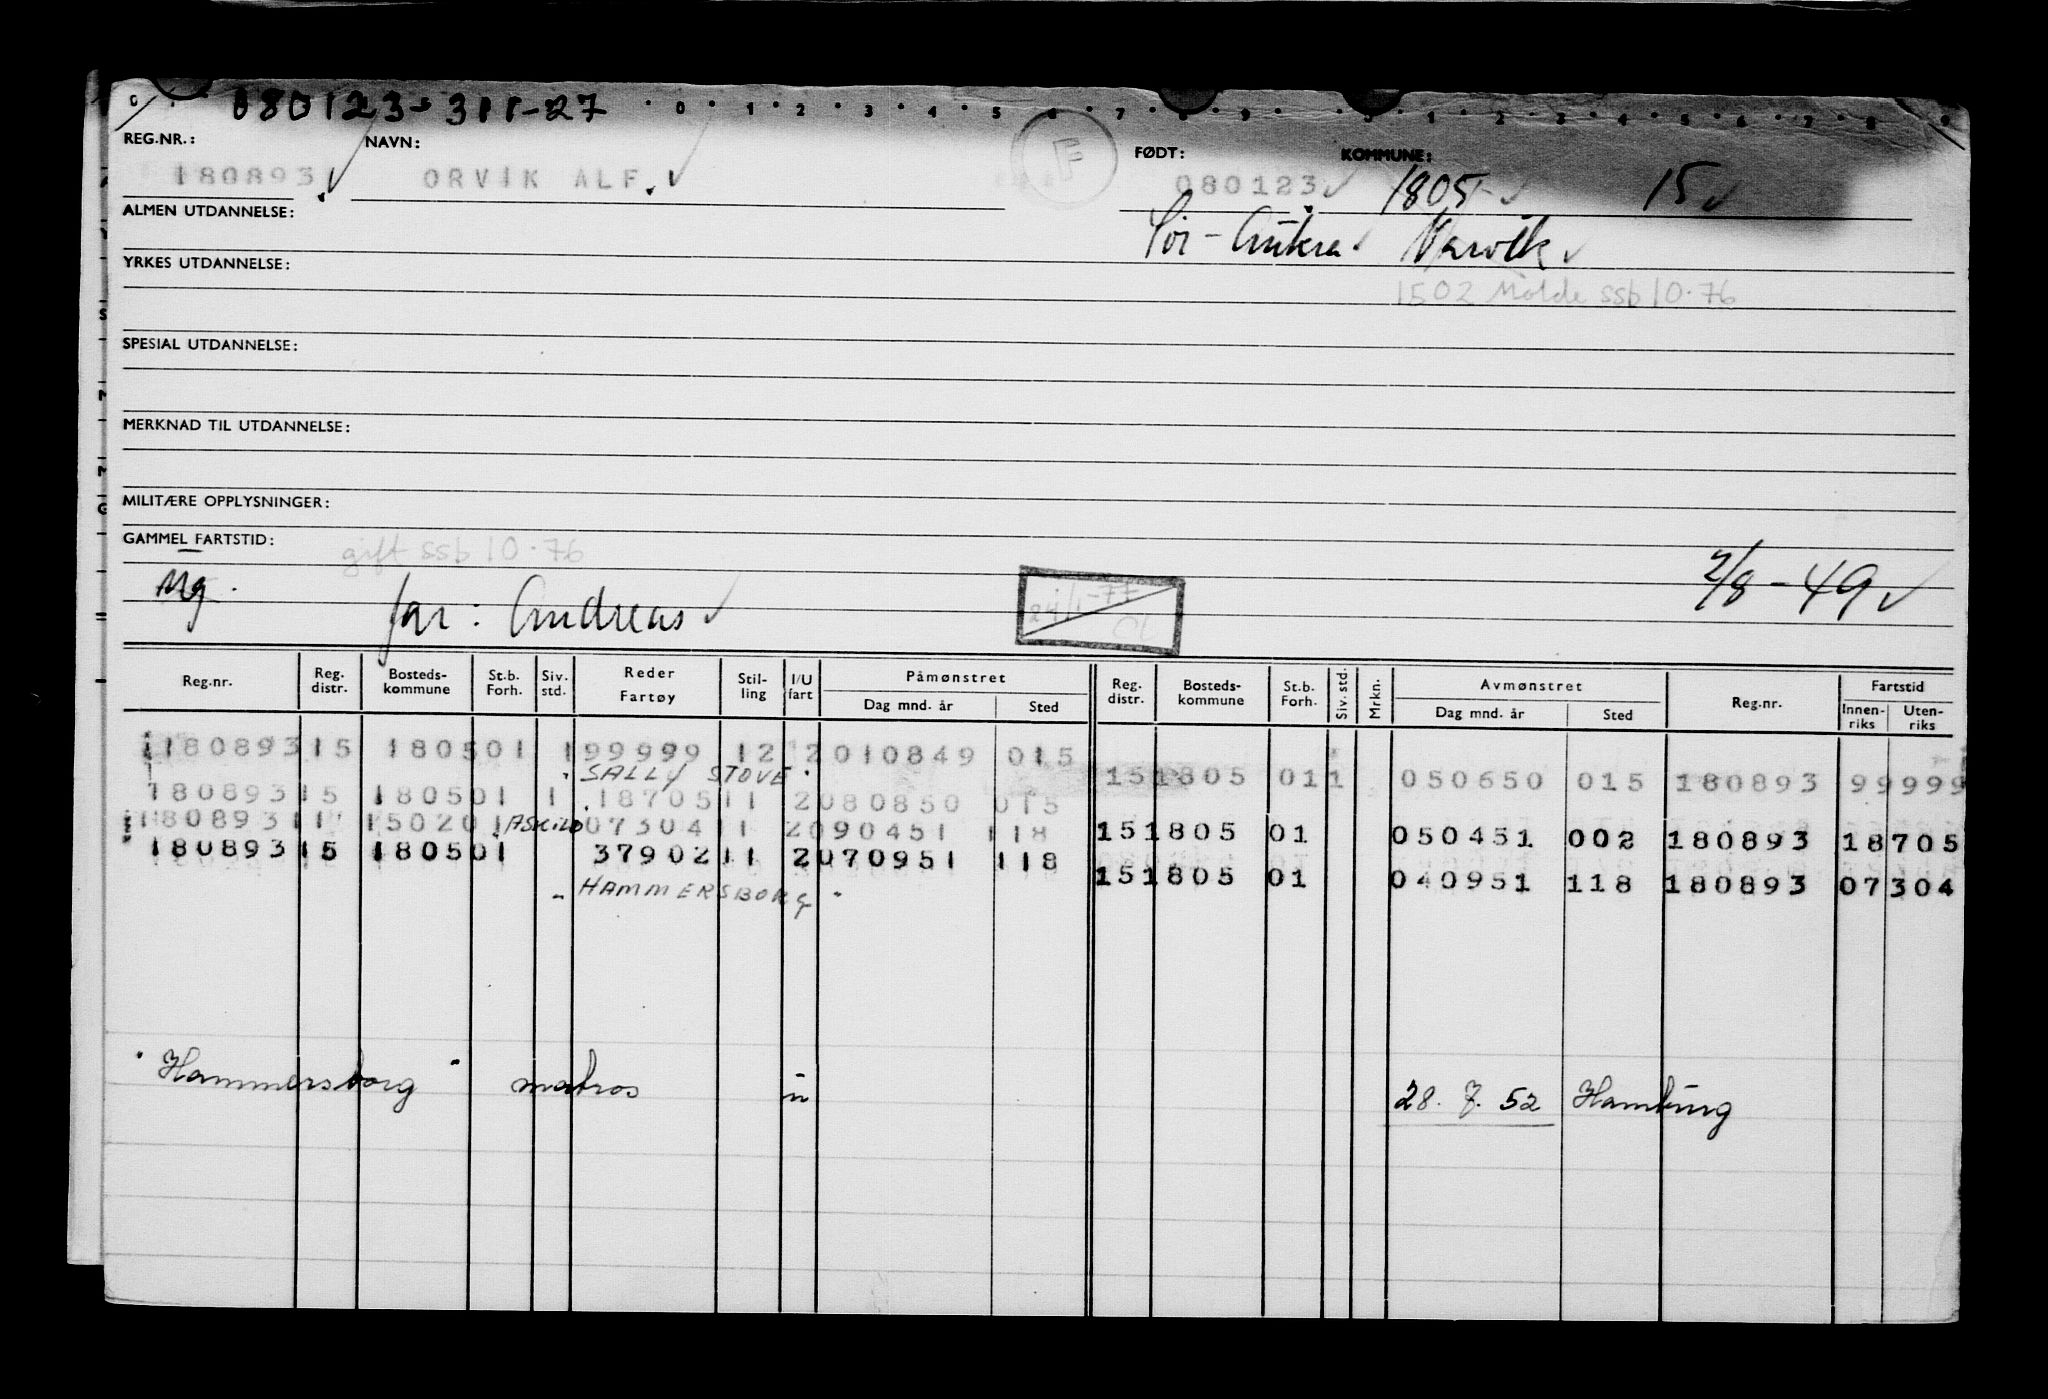 080123-311-27
0 1 2 3 4 5 6 7 8 9 0 1 2 3 4 5 6 7 8 9
REG.NR.: NAVN: FØDT: KOMMUNE:
180893 ORVIK ALF. F 080123 1805 15
ALMEN UTDANNELSE: Sør-Aukra Narvik
YRKES UTDANNELSE:
1502 Molde ssb 10.76
SPESIAL UTDANNELSE:
MERKNAD TIL UTDANNELSE:
MILITÆRE OPPLYSNINGER:
GAMMEL FARTSTID:
gift ssb 10.76
Mg. far: Andreas 24/1-77 2/8-49
Reg.nr. Reg. distr. Bosteds-kommune St.b. Forh. Siv. std. Reder Fartøy Stil-ling I/U fart Påmønstret Dag mnd. år Sted Reg. distr. Bosteds-kommune St.b. Forh. Siv. std. Mrkn. Avmønstret Dag mnd. år Sted Reg.nr. Fartstid Innen-riks Uten-riks
180893 15 1805 01 1 99999 12 2 010849 015
"SALLY STOVE" 15 1805 01 1 050650 015 180893 99999
180893 15 1805 01 1 18705 11 2 080850 015
180893 11 1502 01 ASKILD 07304 11 2 090451 118 15 1805 01 050451 002 180893 18705
180893 15 1805 01 37902 11 2 070951 118
"HAMMERSBORG" 15 1805 01 040951 118 180893 07304
"Hammersborg" matros u 28. 7. 52 Hamburg